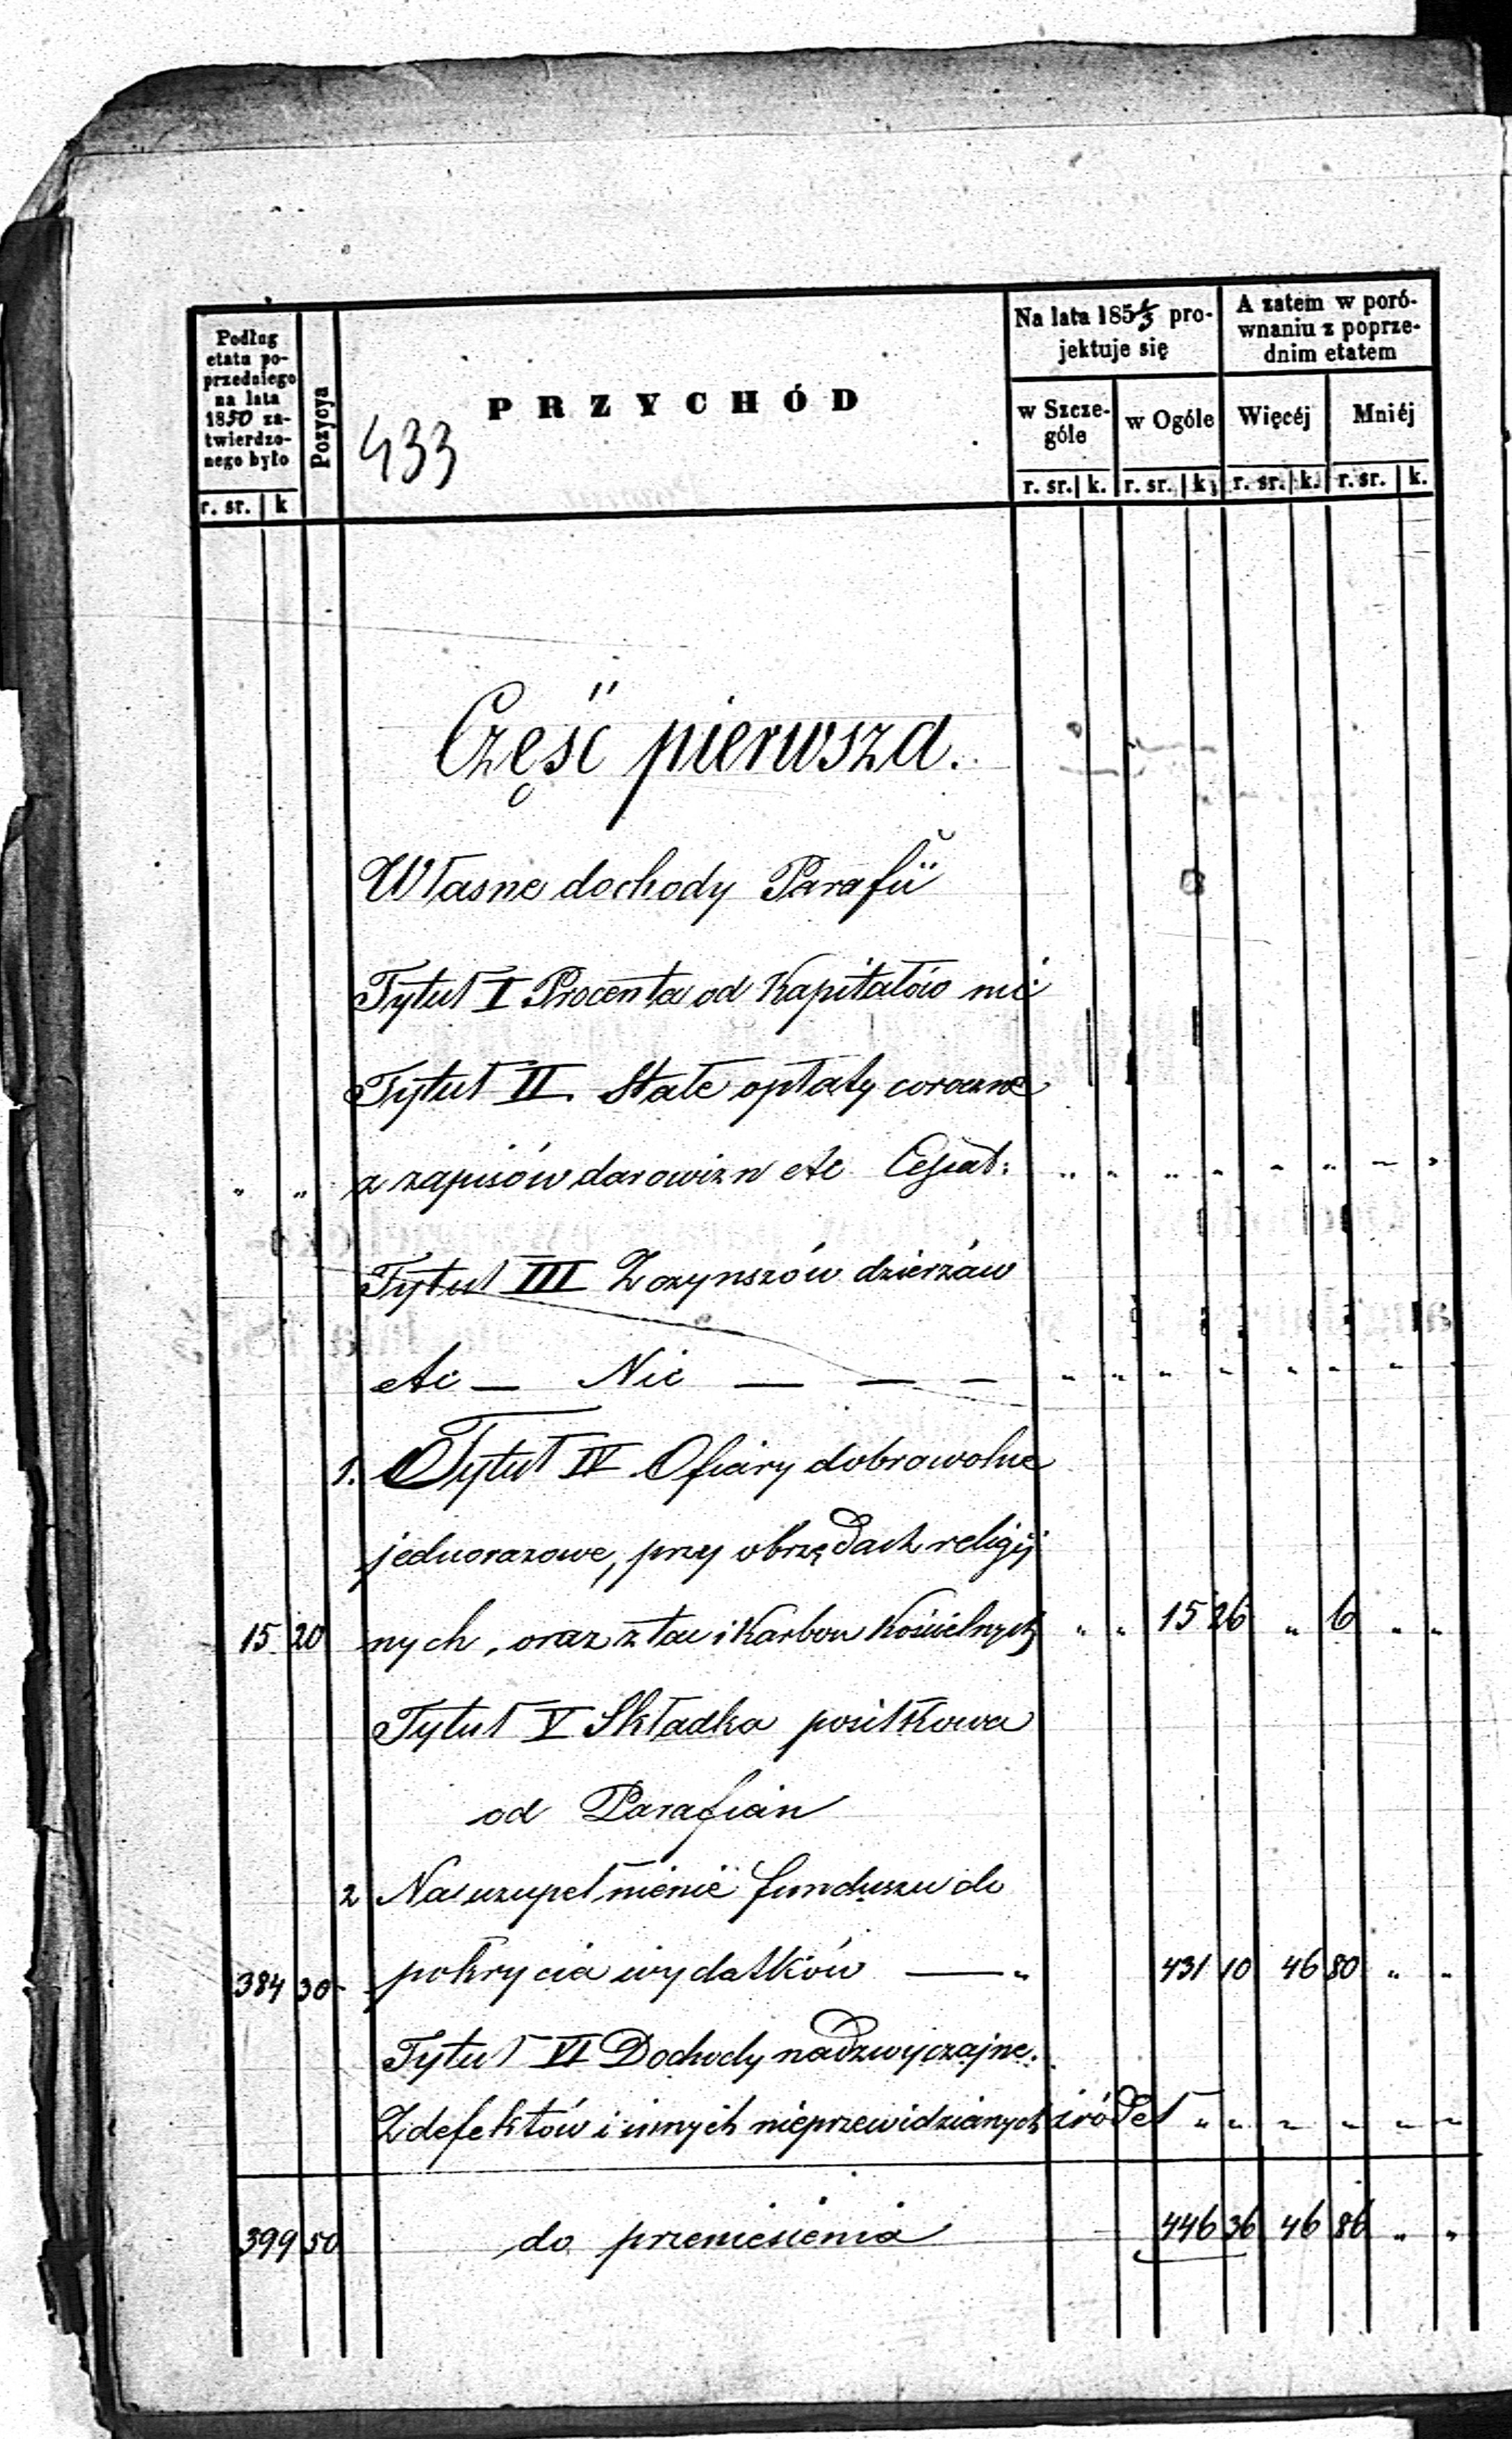 Podług etatu poprzedniego na lata 1850 zatwierdzonego było
Pozycya
PRZYCHÓD
433
Na lata 185 1/3 projektuje się
A zatem w porównaniu z poprzednim etatem
w Szczególe w Ogóle Więcéj Mniéj
r. sr. k r. sr. k. r. sr. k. r. sr. k. r. sr. k.
Część pierwsza.
Własne dochody Parafii
Tytuł I Procenta od Kapitałów nic
Tytuł II. Stałe opłaty coroczne
" " z zapisów darowizn etc " " " " " " " "
Tytuł III Z czynszów dzierżaw
etc — Nic — — — " " " " " " " "
1. Tytuł IV Ofiary dobrowolne
jednorazowe, przy obrzędach religij
15 20 nych, oraz z tac i Karbon Kościelnych " " 15 26 " 6 " "
Tytuł V Składka posiłkowa
od Parafian
2 Na uzupełnienie funduszu do
384 30 pokrycia wydatków — " 431 10 46 80 " "
Tytuł VI Dochody nadzwyczajne.
Z defektów i innych nieprzewidzianych źródeł " " " " " "
399 50 do przeniesienia 446 36 46 86 " "